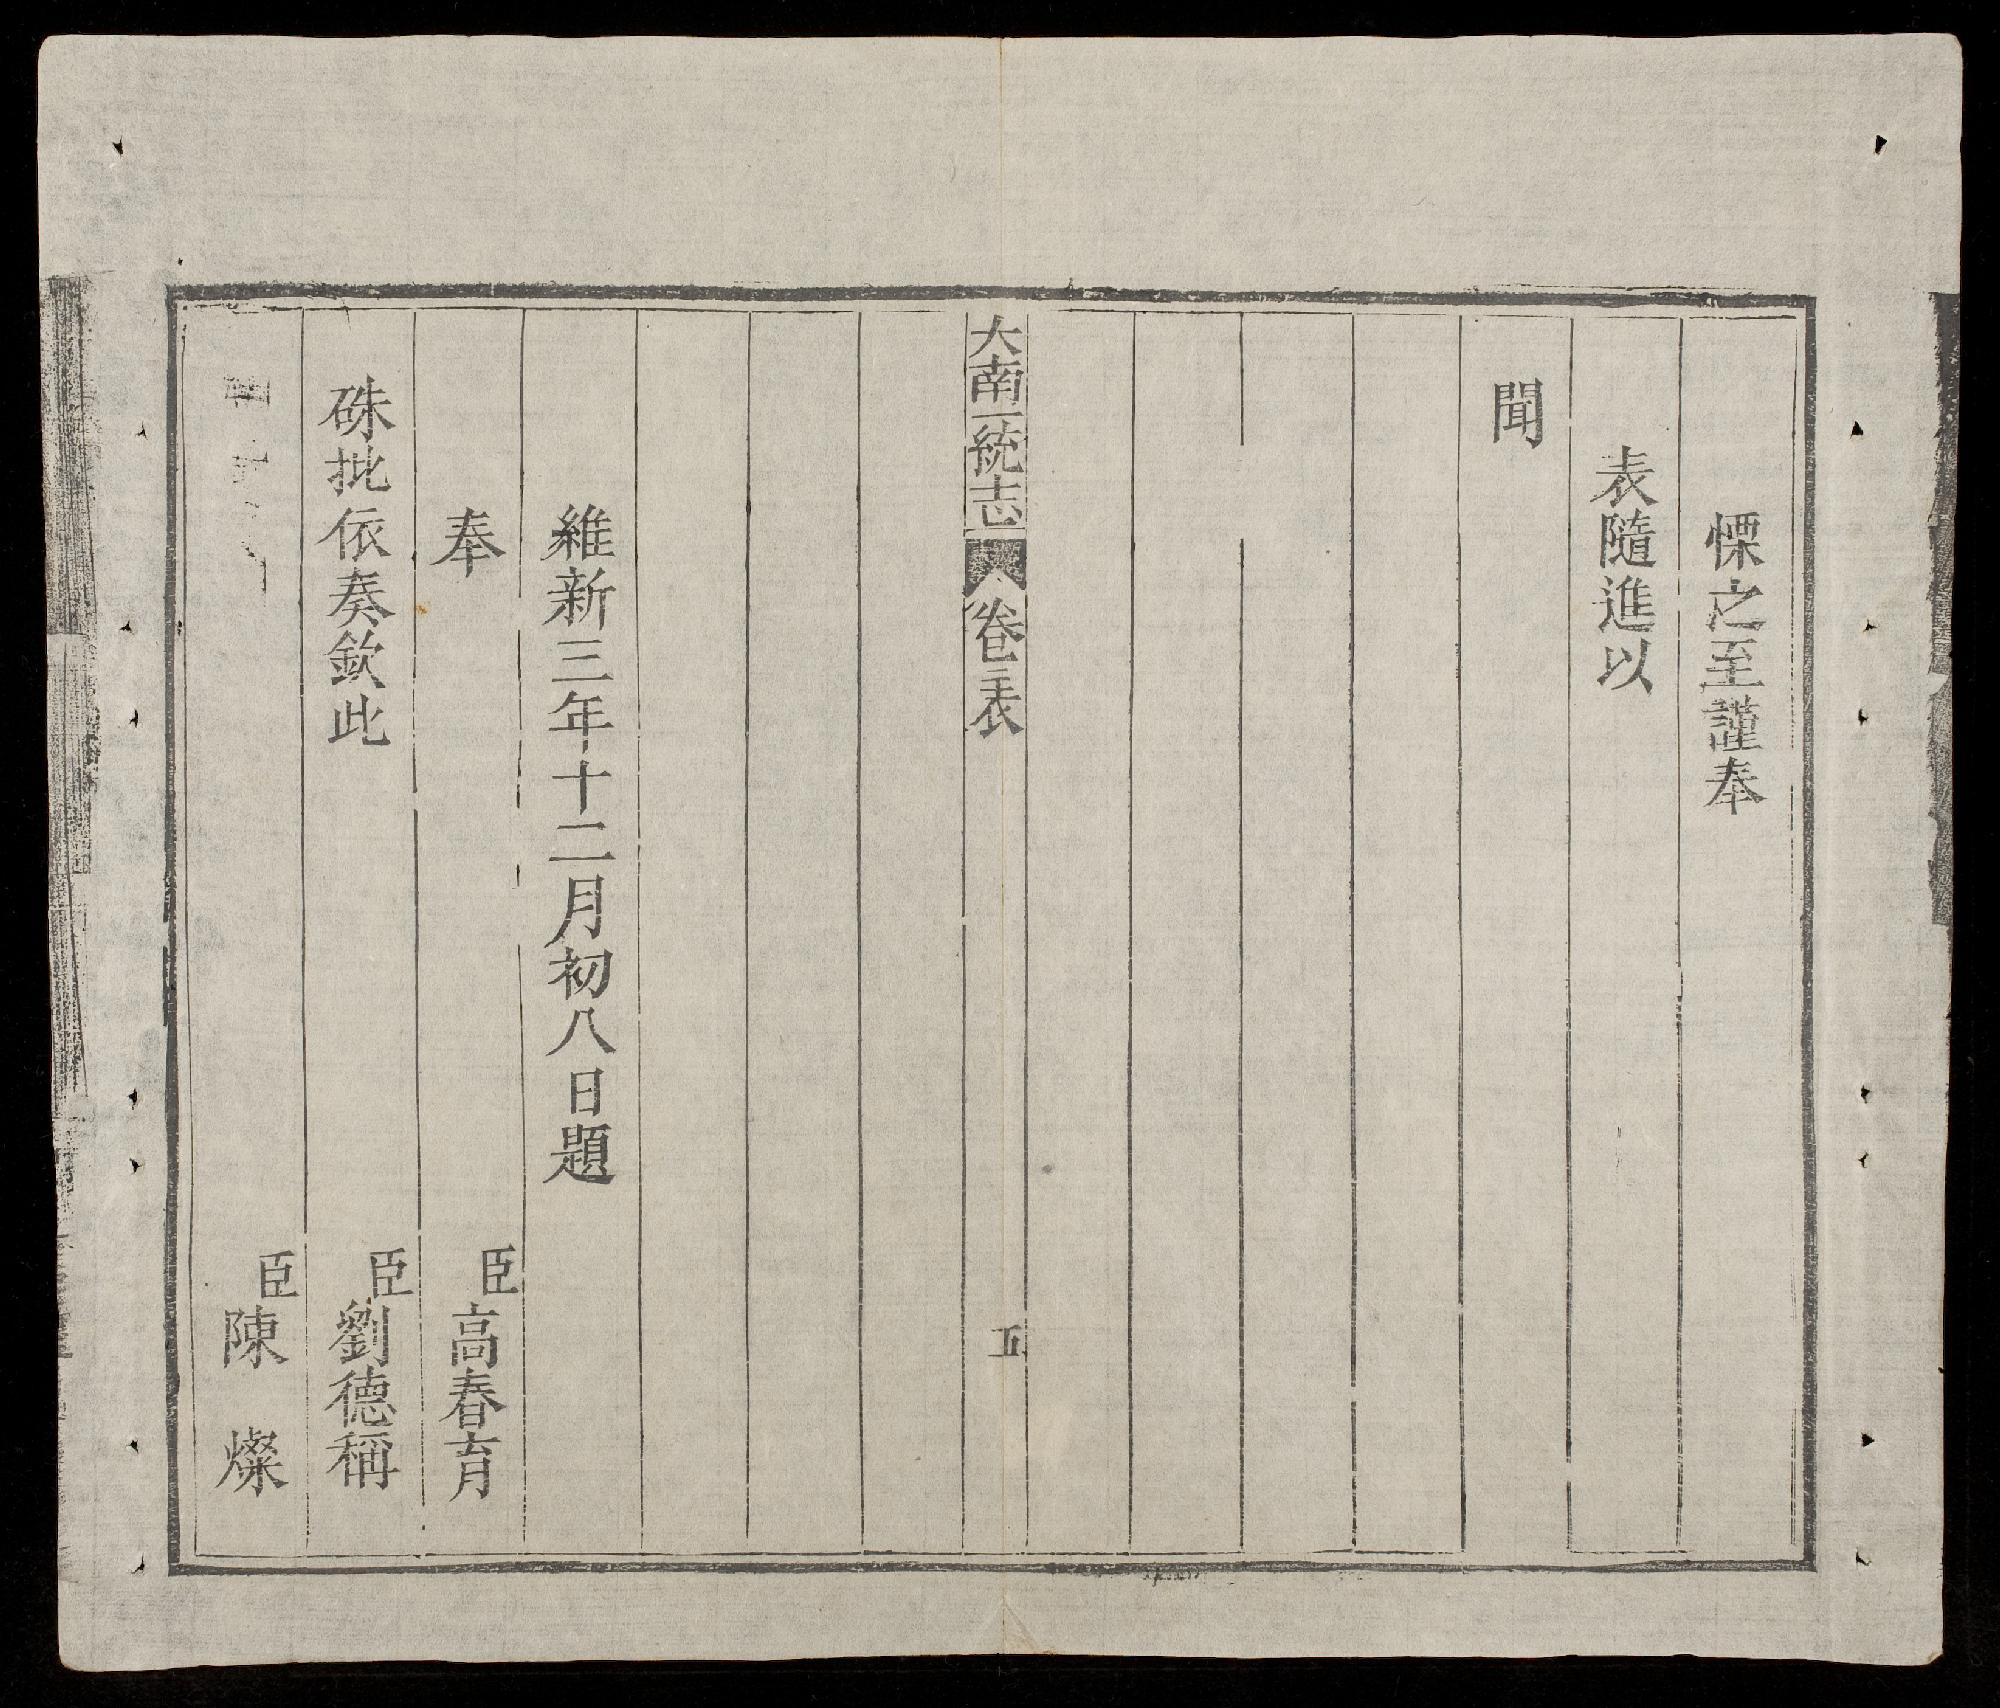 慄之至謹奉
表隨進以
聞
大南一統志 卷之表 五
維新三年十二月初八日題
奉 臣高春育
硃批依奏欽此 臣劉德稱
臣陳燦